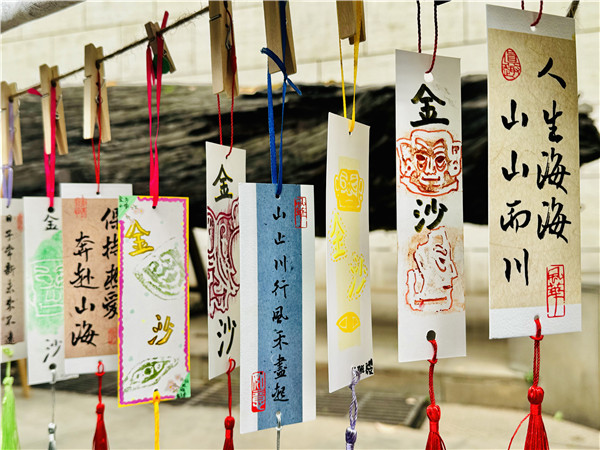 金
沙
奔赴山海
金
沙
金
沙
山止川行風禾盡起
金
沙
金
沙
人生海海
山山而川